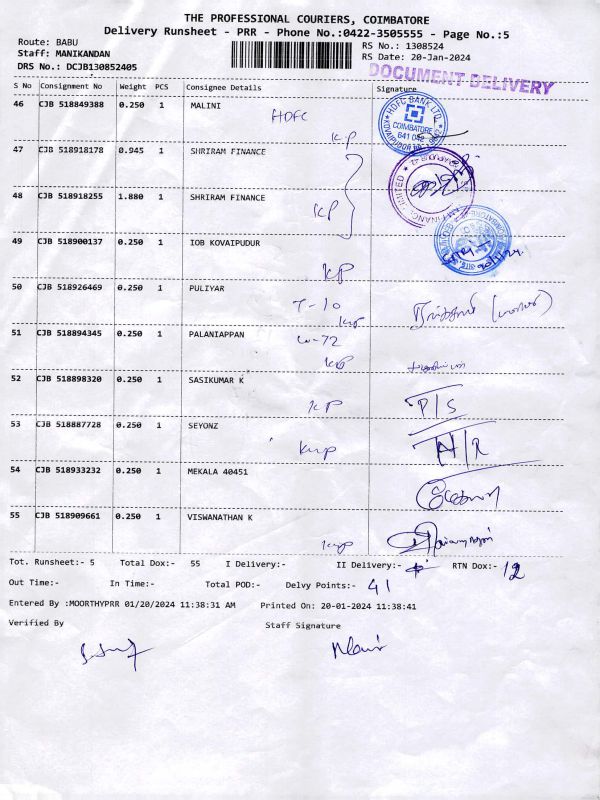 THE PROFESSIONAL COURIERS, COIMBATORE
Delivery Runsheet - PRR - Phone No.:0422-3505555 - Page No.:5
Route: BABU
Staff: MANIKANDAN
DRS No.: DCJB130852405
RS No.: 1308524
RS Date: 20-Jan-2024
DOCUMENT DELIVERY
S No Consignment No Weight PCS Consignee Details Signature
46 CJB 518849388 0.250 1 MALINI
HDFC
KP
HDFC BANK LTD.
COIMBATORE
641 042
47 CJB 518918178 0.945 1 SHRIRAM FINANCE
48 CJB 518918255 1.880 1 SHRIRAM FINANCE
KP
49 CJB 518900137 0.250 1 IOB KOVAIPUDUR
KP
50 CJB 518926469 0.250 1 PULIYAR
T-10
51 CJB 518894345 0.250 1 PALANIAPPAN
W-72
KP
52 CJB 518898320 0.250 1 SASIKUMAR K
KP P/S
53 CJB 518887728 0.250 1 SEYONZ
A/R
54 CJB 518933232 0.250 1 MEKALA 40451
55 CJB 518909661 0.250 1 VISWANATHAN K
Tot. Runsheet:- 5 Total Dox:- 55 I Delivery:- II Delivery:- RTN Dox:- 12
Out Time:- In Time:- Total POD:- Delvy Points:- 41
Entered By :MOORTHYPRR 01/20/2024 11:38:31 AM Printed On: 20-01-2024 11:38:41
Verified By Staff Signature